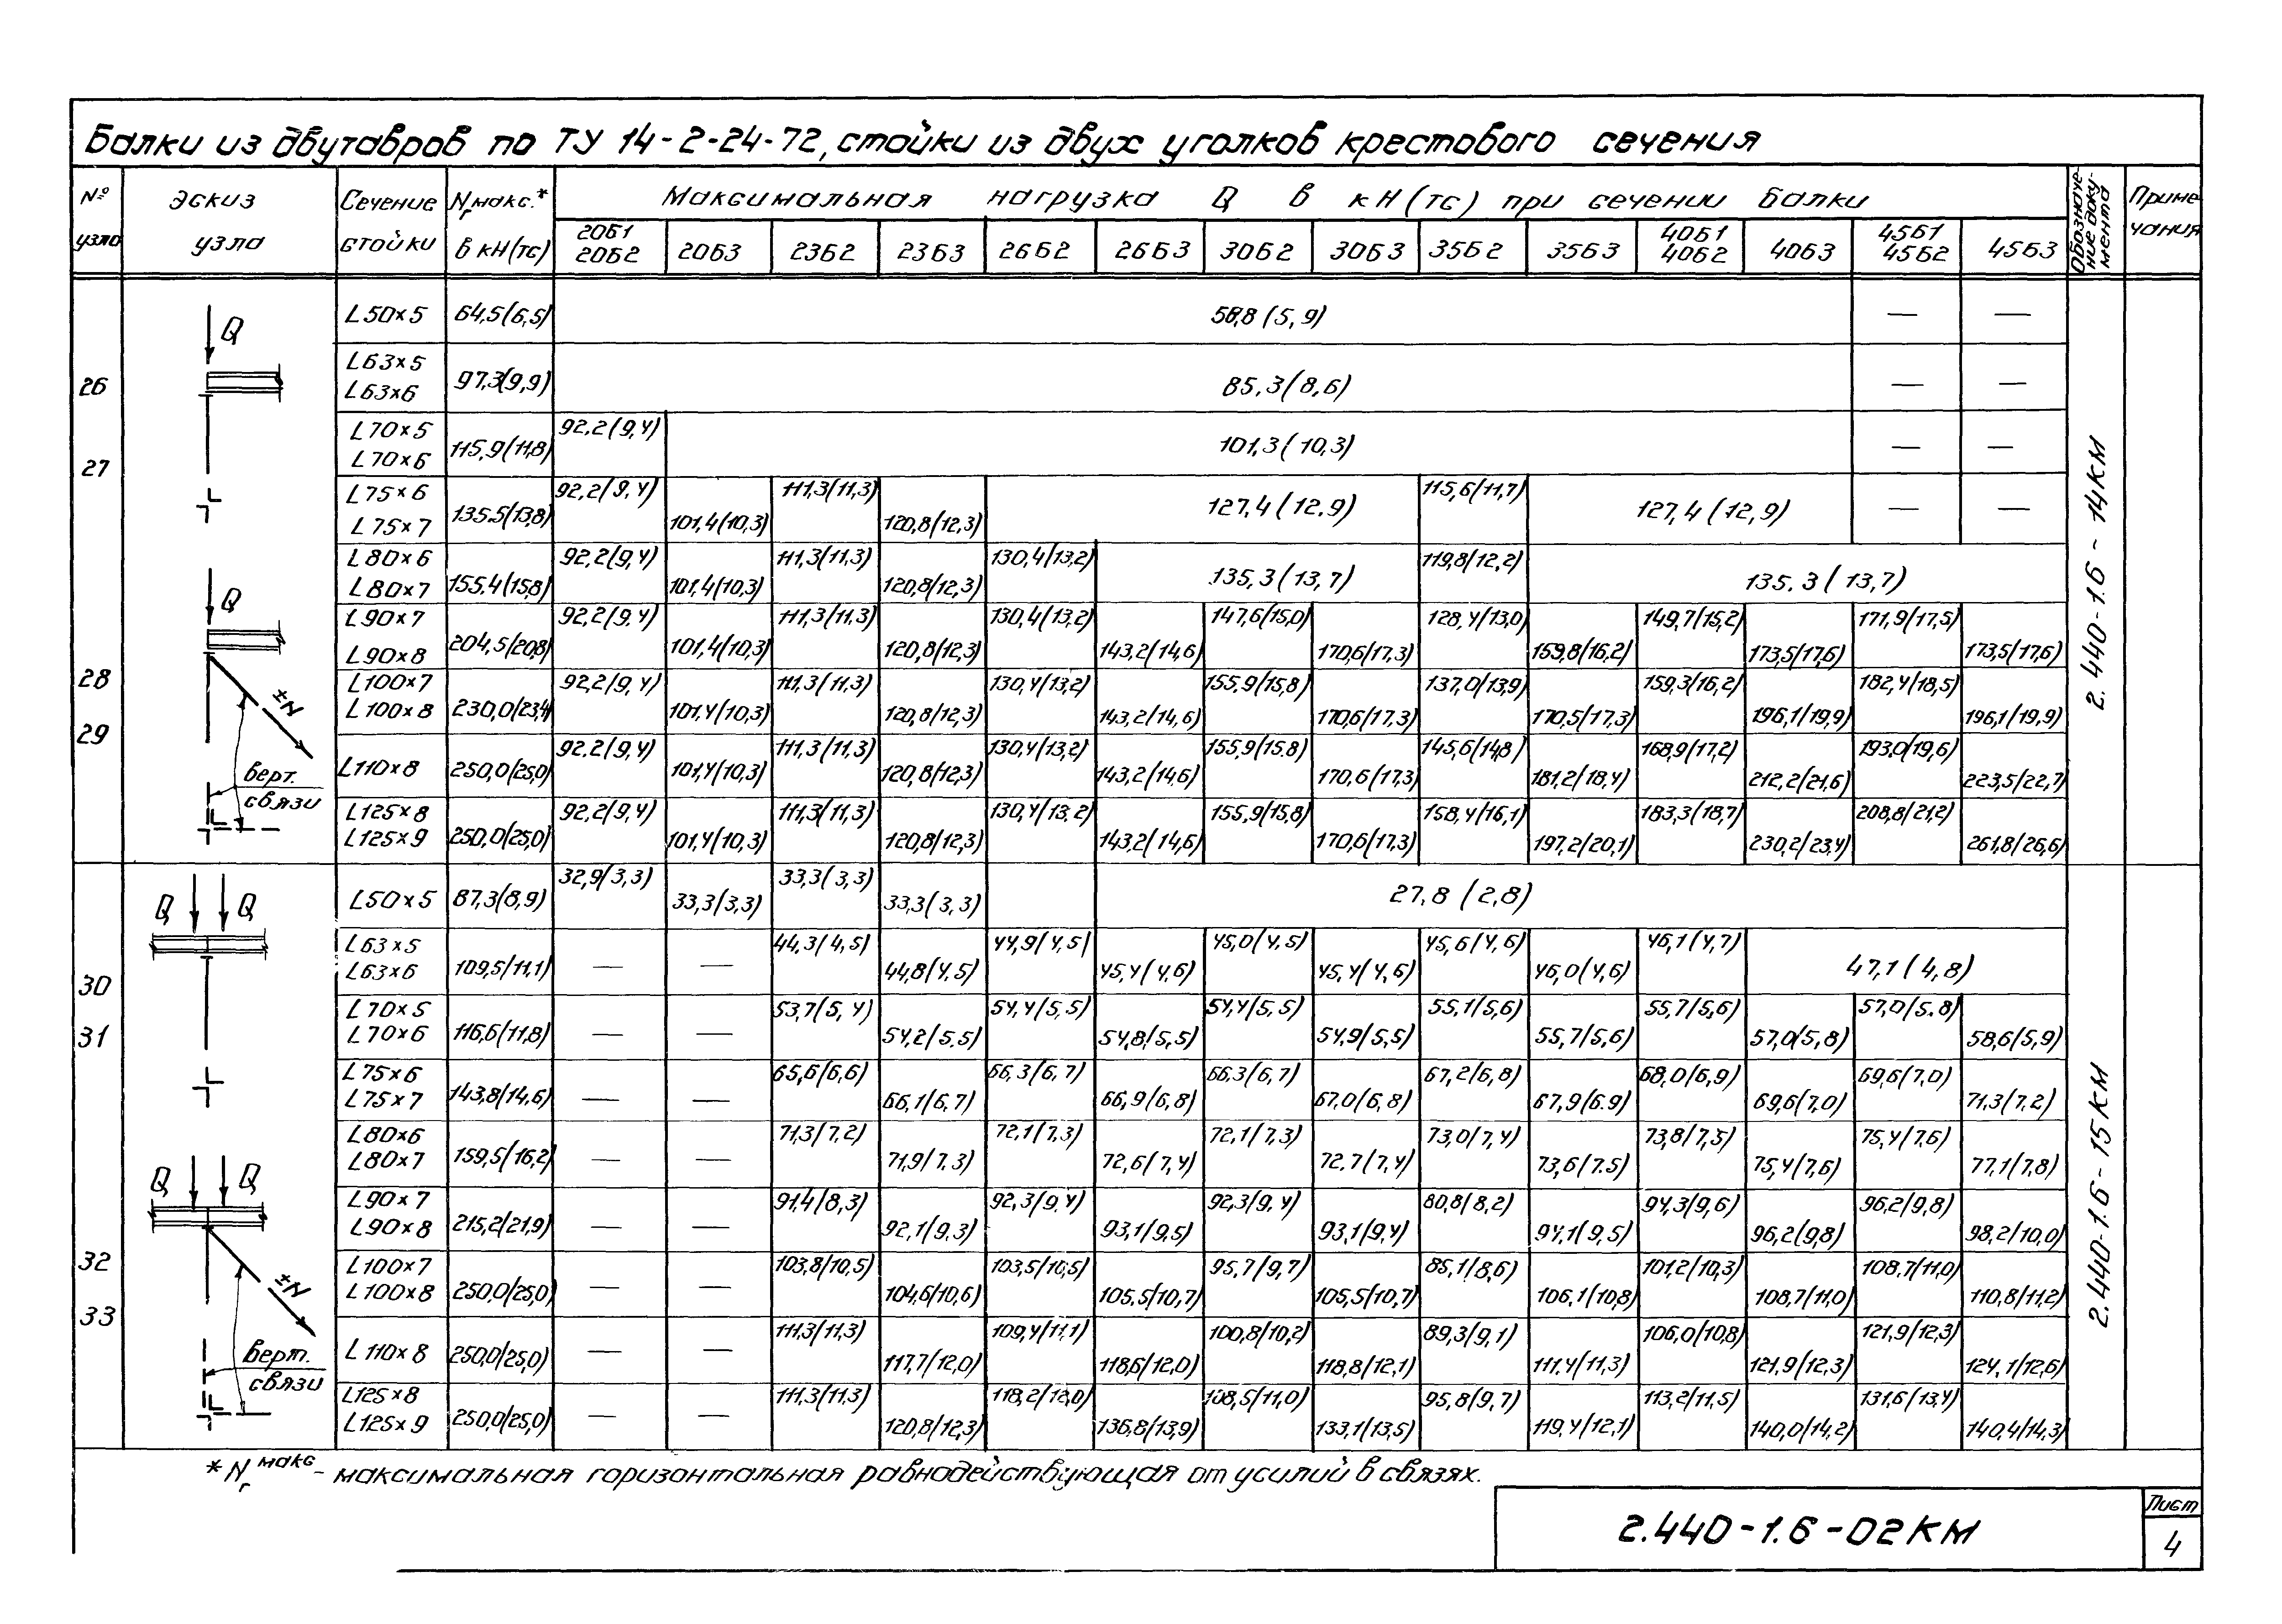 Балки из двутавров по ТУ 14-2-24-72, стойки из двух уголков крестового сечения
№ узла | Эскиз узла | Сечение стойки | Nг макс.* в кН(тс) | Максимальная нагрузка Q в кН(тс) при сечении балки | Обозначение документа | Примечания
20Б1 20Б2 | 20Б3 | 23Б2 | 23Б3 | 26Б2 | 26Б3 | 30Б2 | 30Б3 | 35Б2 | 35Б3 | 40Б1 40Б2 | 40Б3 | 45Б1 45Б2 | 45Б3
26 27 28 29
Q
Q
±N
верт. связи
L50×5 | 64,5(6,5) | 58,8(5,9) | — | —
L63×5 L63×6 | 97,3(9,9) | 85,3(8,6) | — | —
L70×5 L70×6 | 115,9(11,8) | 92,2(9,4) | 101,3(10,3) | — | —
L75×6 L75×7 | 135.5(13,8) | 92,2(9,4) | 101,4(10,3) | 111,3(11,3) | 120,8(12,3) | 127,4(12.9) | 115,6(11,7) | 127,4(12,9) | — | —
L80×6 L80×7 | 155.4(15,8) | 92,2(9,4) | 101,4(10,3) | 111,3(11,3) | 120,8(12,3) | 130,4(13,2) | 135,3(13,7) | 119,8(12,2) | 135.3(13,7)
L90×7 L90×8 | 204,5(20,8) | 92,2(9,4) | 101,4(10,3) | 111,3(11,3) | 120,8(12,3) | 130,4(13,2) | 143,2(14,6) | 147,6(15,0) | 170,6(17,3) | 128,4(13,0) | 159,8(16,2) | 149,7(15,2) | 173,5(17,6) | 171,9(17,5) | 173,5(17,6)
L100×7 L100×8 | 230,0(23,4) | 92,2(9,4) | 101,4(10,3) | 111,3(11,3) | 120,8(12,3) | 130,4(13,2) | 143,2(14,6) | 155,9(15,8) | 170,6(17,3) | 137,0(13,9) | 170,5(17,3) | 159,3(16,2) | 196,1(19,9) | 182,4(18,5) | 196,1(19,9)
L110×8 | 250,0(25,0) | 92,2(9,4) | 101,4(10,3) | 111,3(11,3) | 120,8(12,3) | 130,4(13,2) | 143,2(14,6) | 155,9(15.8) | 170,6(17,3) | 145,6(14,8) | 181,2(18,4) | 168,9(17,2) | 212,2(21,6) | 193,0(19,6) | 223,5(22,7)
L125×8 L125×9 | 250,0(25,0) | 92,2(9,4) | 101,4(10,3) | 111,3(11,3) | 120,8(12,3) | 130,4(13,2) | 143,2(14,6) | 155,9(15,8) | 170,6(17,3) | 158,4(16,1) | 197,2(20,1) | 183,3(18,7) | 230,2(23,4) | 208,8(21,2) | 261,8(26,6)
2.440-1.6-14КМ
30 31 32 33
Q Q
Q Q
±N
верт. связи
L50×5 | 87,3(8,9) | 32,9(3,3) | 33,3(3,3) | 33,3(3,3) | 33,3(3,3) | 27,8(2,8)
L63×5 L63×6 | 109,5(11,1) | — | — | 44,3(4,5) | 44,8(4,5) | 44,9(4,5) | 45,4(4,6) | 45,0(4,5) | 45,4(4,6) | 45,6(4,6) | 46,0(4,6) | 46,1(4,7) | 47,1(4,8)
L70×5 L70×6 | 116,6(11,8) | — | — | 53,7(5,4) | 54,2(5,5) | 54,4(5,5) | 54,8(5,5) | 54,4(5,5) | 54,9(5,5) | 55,1(5,6) | 55,7(5,6) | 55,7(5,6) | 57,0(5,8) | 57,0(5.8) | 58,6(5,9)
L75×6 L75×7 | 143,8(14,6) | — | — | 65,6(6,6) | 66,1(6,7) | 66,3(6,7) | 66,9(6,8) | 66,3(6,7) | 67,0(6,8) | 67,2(6,8) | 67,9(6.9) | 68,0(6,9) | 69,6(7,0) | 69,6(7,0) | 71,3(7,2)
L80×6 L80×7 | 159,5(16,2) | — | — | 71,3(7,2) | 71,9(7,3) | 72,1(7,3) | 72,6(7,4) | 72,1(7,3) | 72,7(7,4) | 73,0(7,4) | 73,6(7.5) | 73,8(7,5) | 75,4(7,6) | 75,4(7,6) | 77,1(7,8)
L90×7 L90×8 | 215,2(21,9) | — | — | 91,4(8,3) | 92,1(9,3) | 92,3(9,4) | 93,1(9,5) | 92,3(9,4) | 93,1(9,4) | 80,8(8,2) | 94,1(9,5) | 94,3(9,6) | 96,2(9,8) | 96,2(9,8) | 98,2(10,0)
L100×7 L100×8 | 250,0(25,0) | — | — | 103,8(10,5) | 104,6(10,6) | 103,5(10,5) | 105,5(10,7) | 95,7(9,7) | 105,5(10,7) | 85,1(8,6) | 106,1(10,8) | 101,2(10,3) | 108,7(11,0) | 108,7(11,0) | 110,8(11,2)
L110×8 | 250,0(25,0) | — | — | 111,3(11,3) | 117,7(12,0) | 109,4(11,1) | 118,6(12,0) | 100,8(10,2) | 118,8(12,1) | 89,3(9,1) | 111,4(11,3) | 106,0(10,8) | 121,9(12,3) | 121,9(12,3) | 124,1(12,6)
L125×8 L125×9 | 250,0(25,0) | — | — | 111,3(11,3) | 120,8(12,3) | 118,2(12,0) | 136,8(13,9) | 108,5(11,0) | 133,1(13,5) | 95,8(9,7) | 119,4(12,1) | 113,2(11,5) | 140,0(14,2) | 131,6(13,4) | 140,4(14,3)
2.440-1.6-15КМ
* Nг макс – максимальная горизонтальная равнодействующая от усилий в связях.
2.440-1.6-02КМ
Лист
4